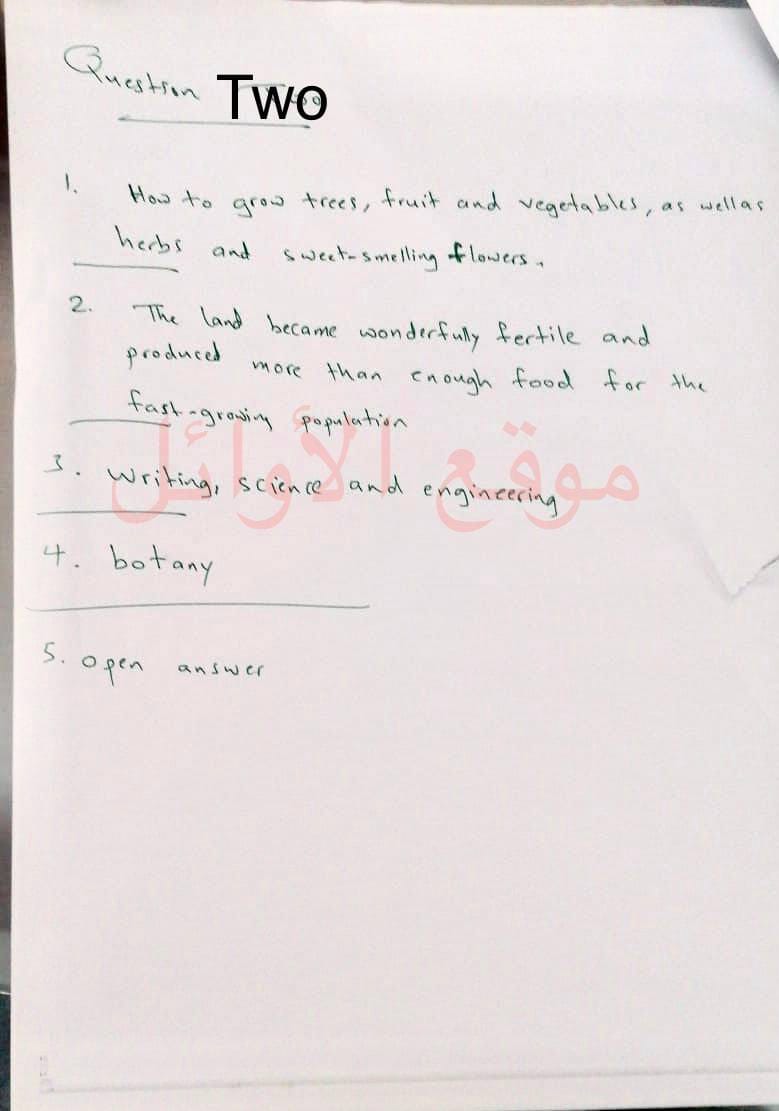 Question Two
1. How to grow trees, fruit and vegetables, as well as
herbs and sweet-smelling flowers.
2. The land became wonderfully fertile and
produced more than enough food for the
fast-growing population
موقع الأوائل
3. Writing, science and engineering
4. botany
5. open answer